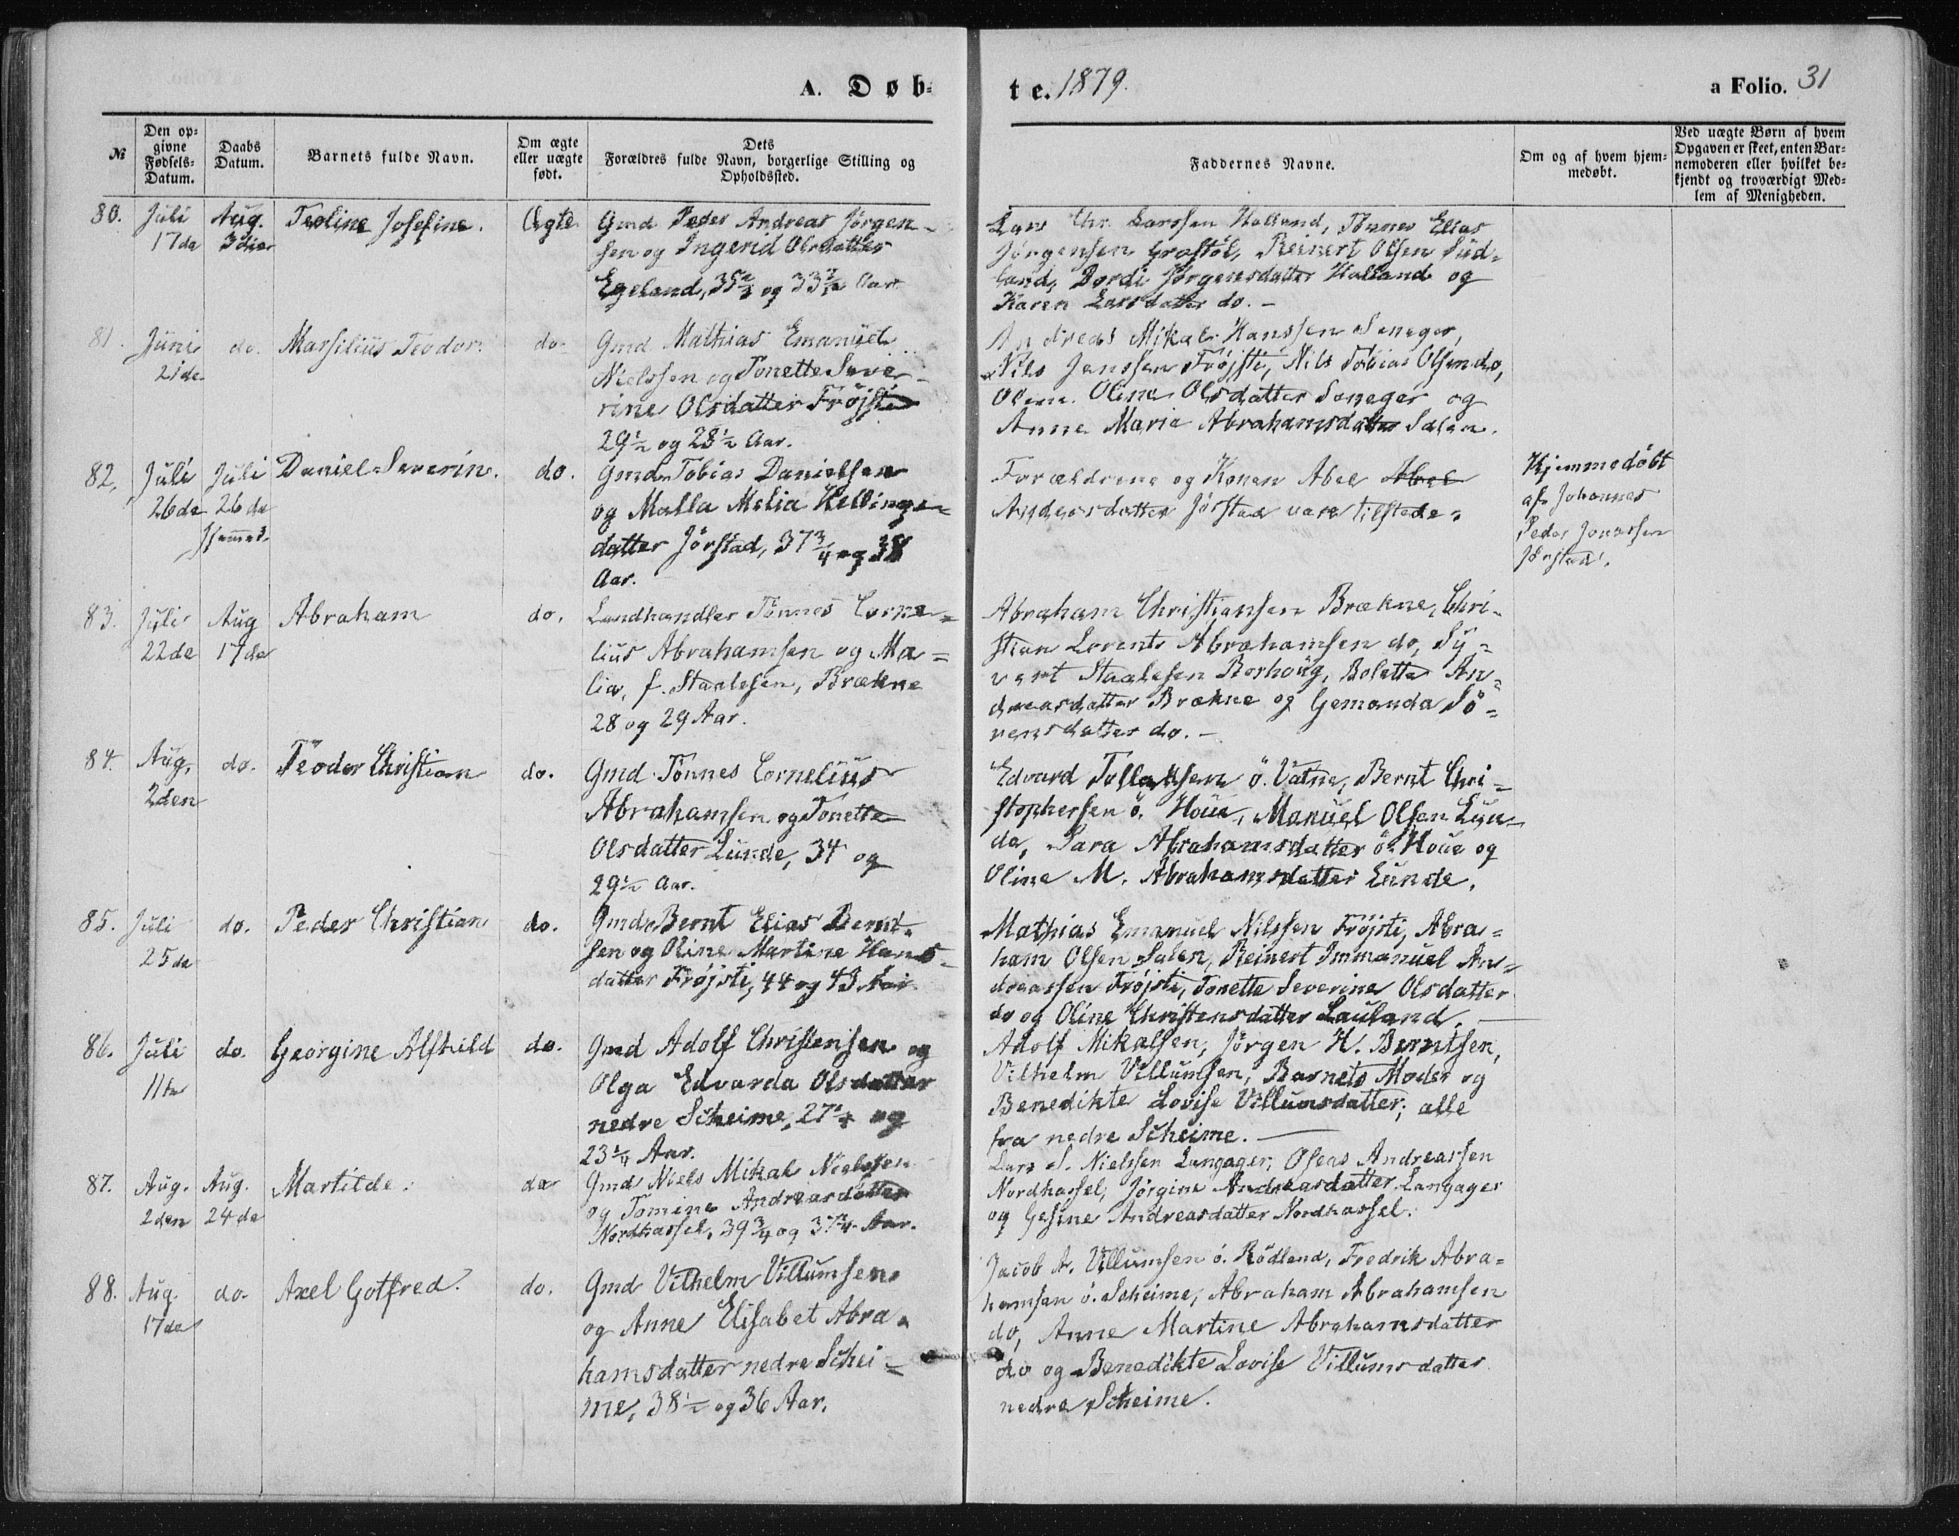 A. Døb-
te. 1879.
a Folio. 31
№
Den op-
givne
Fødsels-
Datum.
Daabs
Datum.
Barnets fulde Navn.
Om ægte
eller uægte
født.
Dets
Forældres fulde Navn, borgerlige Stilling og
Opholdssted.
Faddernes Navne.
Om og af hvem hjem-
medøbt.
Ved uægte Børn af hvem
Opgaven er skeet, enten Bar-
nemoderen eller hvilket be-
kjendt og troværdigt Med-
lem af Menigheden.
80.
Juli
17de
Aug.
3die
Teoline Josefine.
Ægte
Gmd Peder Andreas Jørgen-
sen og Ingerid Olsdatter
Egeland, og Aar.
Lars Chr. Larssen Halland, Tønnes Elias
Jørgensen Grostøl, Reinert Olsen Sud-
land, Dordi Jørgensdatter Halland og
Karen Larsdatter do. -
81.
Juni
21de
do.
Marsilius Teodor.
do.
Gmd Mathias Emanuel
Nielssen og Tonette Seve-
rine Olsdatter Frøjsti
29½ og 28½ Aar.
Andreas Mikal Hanssen Seneger,
Nils Janssen Frøjsti, Nils Tobias Olsen do,
Oline Olsdatter Seneger og
Anne Maria Abrahamsdatter Salen.
82.
Juli
26de
Juli
26de
Hjemmed.
Daniel Severin.
do.
Gmd Tobias Danielsen
og Malla Melia Helvings-
datter Jørstad, 37¾ og 38
Aar.
Forældrene og Konen Abel Abel
Andersdatter Jørstad vare tilstede.
Hjemmedøbt
af Johannes
Peder Jonassen
Jørstad.
83.
Juli
22de
Aug
17de
Abraham
do.
Landhandler Tønnes Corne-
lius Abrahamsen og Ma-
lia, f. Staalesen, Brækne
28 og 29 Aar.
Abraham Christiansen Brækne, Chri-
stian Lorents Abrahamsen do, Sy-
vert Staalesen Borhoug, Bolette An-
dreasdatter Brækne og Gemanda Sø-
rensdatter do. -
84.
Aug.
2den
do.
Teodor Christian
do.
Gmd Tønnes Cornelius
Abrahamsen og Tonette
Olsdatter Lunde, 34 og
29½ Aar.
Edvard Tollaksen ö. Vatne, Bernt Chri-
stophersen ö. Houe, Manuel Olsen Lun-
de, Sara Abrahamsdatter ö. Houe og
Oline M. Abrahamsdatter Lunde.
85.
Juli
25de
do.
Peder Christian
do.
Gmd Bernt Elias Bernt-
sen og Oline Martine Hans-
datter Frøjsti, 44 og 43 Aar.
Mathias Emanuel Nilssen Frøjsti, Abra-
ham Olsen Salen, Reinert Immanuel An-
dreassen Frøjsti, Tonette Severine Olsdatter
do og Oline Christensdatter Lauland.
86.
Juli
11te
do.
Georgine Alfhild
do.
Gmd Adolf Christensen og
Olga Edvarda Olsdatter
nedre Scheime, og
23¼ Aar.
Adolf Mikalsen, Jørgen H. Berntsen,
Vilhelm Villumsen, Barnets Moder og
Benedikte Lovise Villumsdatter, alle
fra nedre Scheime.
87.
Aug.
2den
Aug.
24de
Martilde.
do
Gmd Niels Mikal Nielssen
og Tomine Andreasdatter
Nordhassel, 39¾ og 37¾ Aar.
Lars S. Nielssen Langager, Oseas Andreassen
Nordhassel, Jørgine Andreasdatter Langager
og Gesine Andreasdatter Nordhassel.
88.
Aug.
17de
do.
Axel Gotfred.
do.
Gmd Vilhelm Villumsen
og Anne Elisabet Abra-
hamsdatter nedre Schei-
me, 38½ og 36 Aar.
Jacob A. Villumsen ö. Rödland, Fredrik Abra-
hamsen ö. Scheime, Abraham Abrahamsen
do, Anne Martine Abrahamsdatter
do og Benedikte Lovise Villumsdatter
nedre Scheime.